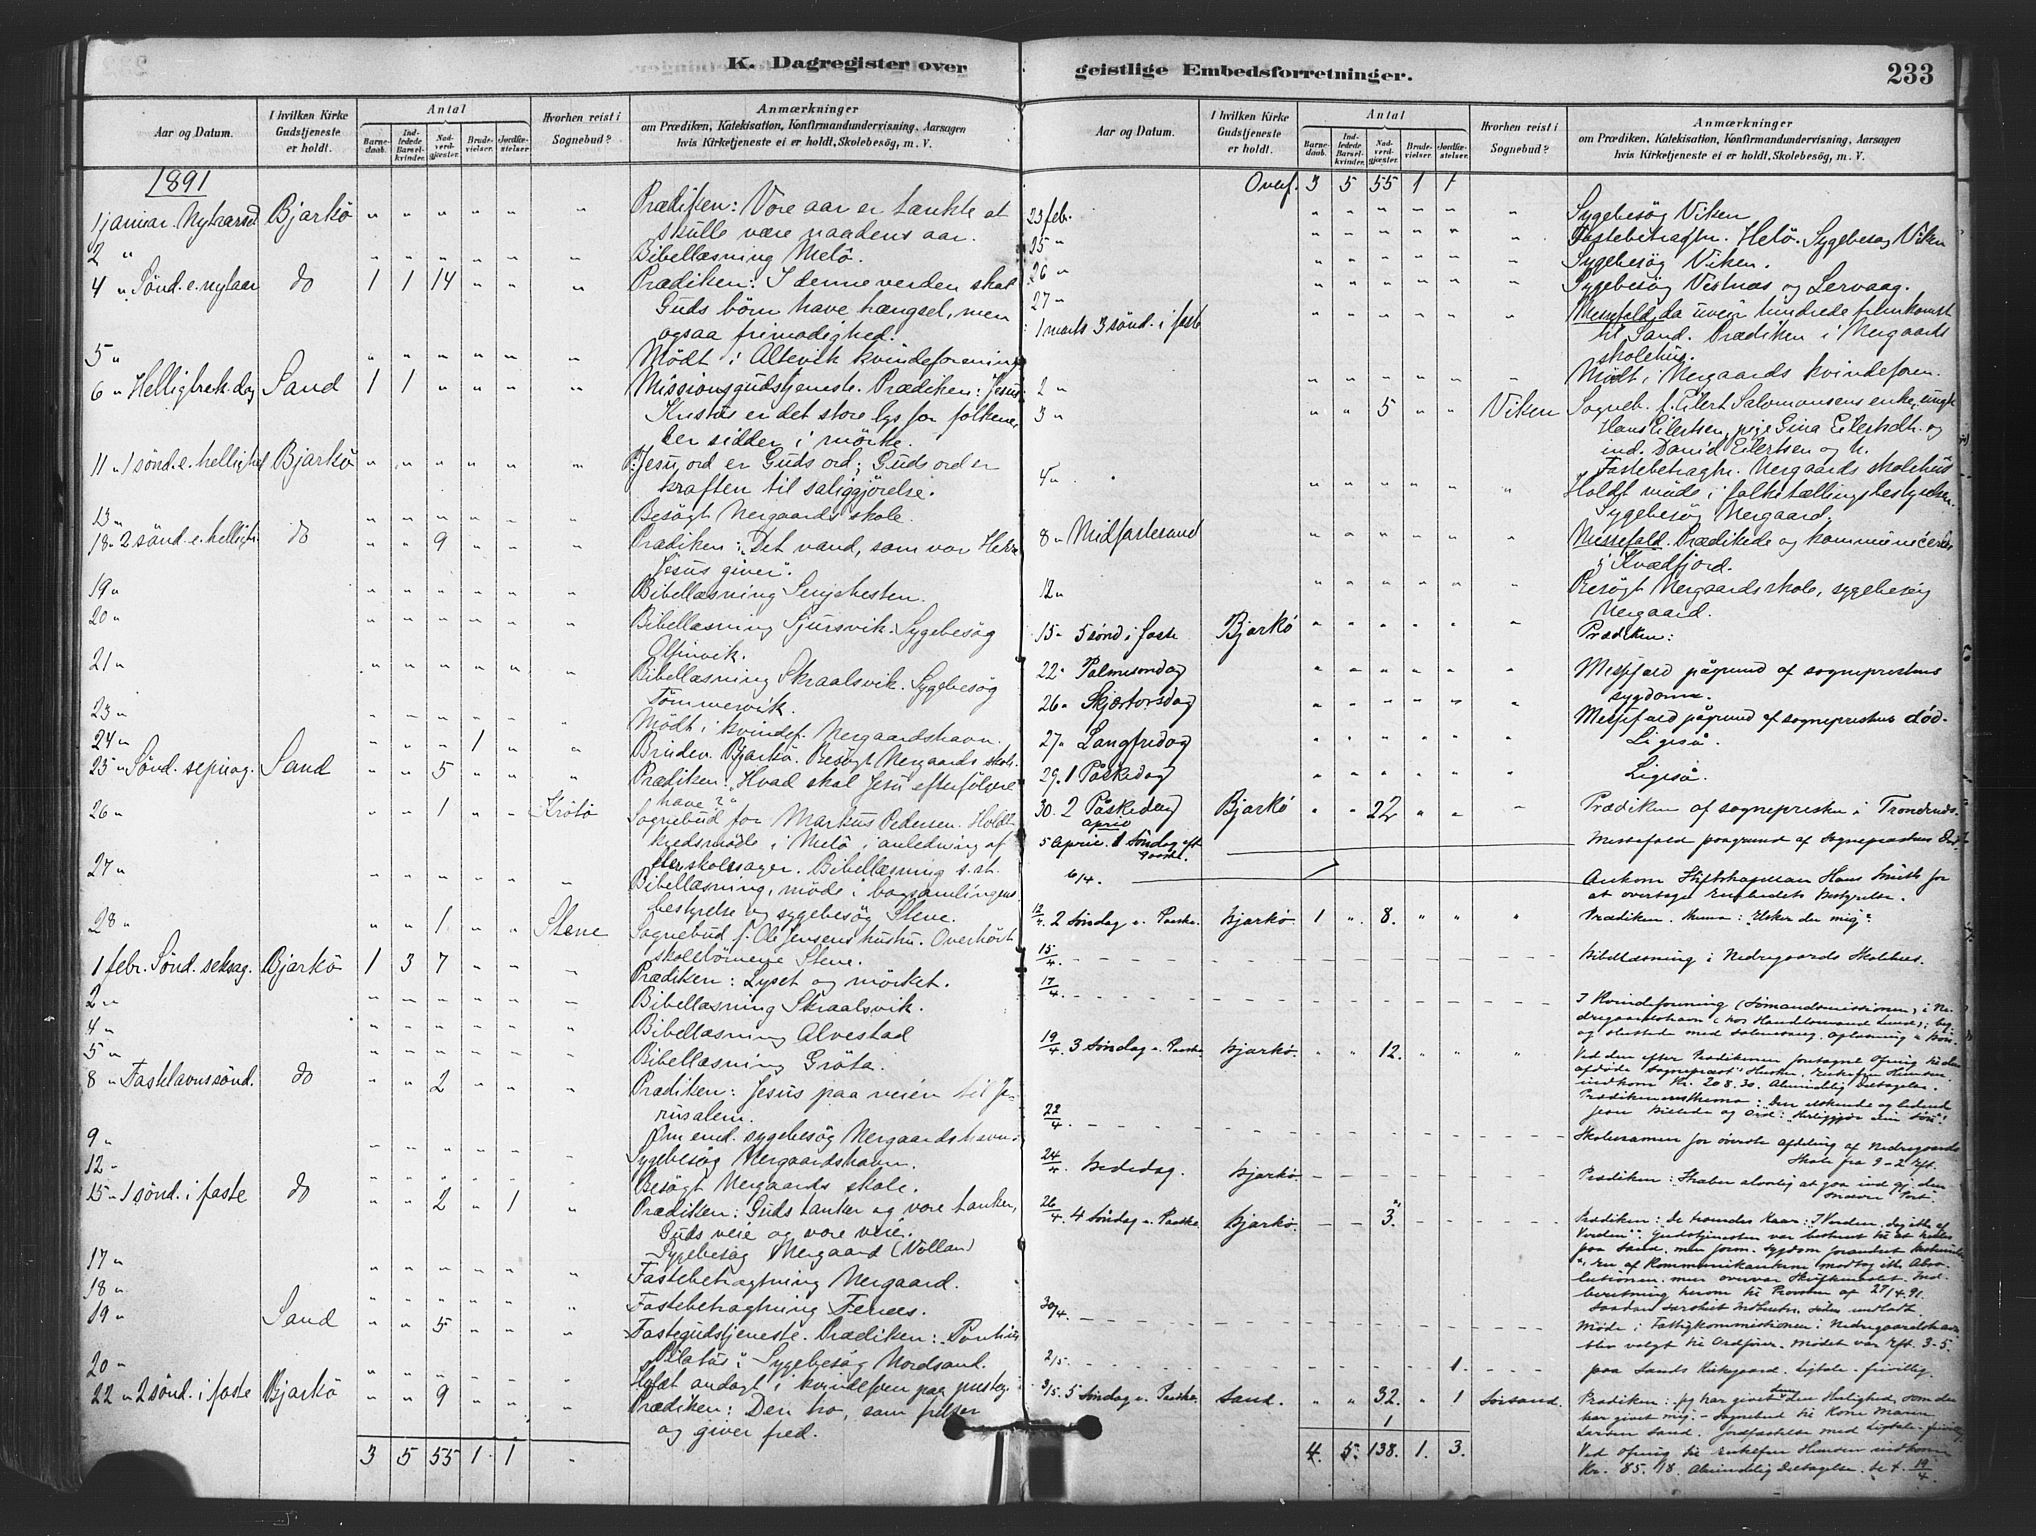 K. Dagregister over
Aar og Datum.
I hvilken Kirke Gudstjeneste er holdt.
Antal
Barnedaab.
Indledede Barselkvinder.
Nadverdgjæster.
Brudevielser.
Jordfæstelser.
Hvorhen reist i Sognebud?
Anmærkninger
om Prædiken, Katekisation, Konfirmandundervisning, Aarsagen
hvis Kirketjeneste ei er holdt, Skolebesög, m. V.
1891
1 januar Nytaarsd Bjarkö " " " " " " Prædiken: Vore aar er tænkte at
skulle være naadens aar.
2 " " " " " " " Bibellæsning Melö.
4 " Sönd. e. nytaar do 1 1 14 " " " Prædiken: I denne verden skal
Guds börn have trængsel, men
ogsaa frimodighed.
5 " " " " " " " Mödt i Altevik kvindeforening
6 " Helligtrek. dag Sand 1 1 " " " " Missionsgudstjeneste. Prædiken: Jesus
Kristus er det store lys for folkene,
der sidder i mörke.
11 " 1 sönd. e. hellig Bjarkö " " " " " " P: Jesu ord er Guds ord; Guds ord er
kraften til saliggjörelse.
13 " " " " " " " Besögt Nergaards skole.
18 " 2 sönd. e. hellig do " " 9 " " " Prædiken: "Det vand, som vor Herre
Jesus giver".
19 " " " " " " " Bibellæsning Senjehesten.
20 " " " " " " " Bibellæsning Sjursvik. Sygebesög
Alfinvik.
21 " " " " " " " Bibellæsning Skraalsvik. Sygebesög
Tömmervik.
23 " " " " " " " Mödt i kvindef. Nergaardshavn.
24 " " " " 1 " " Brudev. Bjarkö. Besögt Nergaards skole.
25 " Sönd. septuag. Sand " " 5 " " " Prædiken: "Hvad skal Jesu efterfölgere
have?"
26 " " " 1 " " Krötö Sognebud for Markus Pedersen. Holdt
kredsmöde i Melö i anledning af
skolesager. Bibellæsning s. st.
27 " " " " " " " Bibellæsning, möde i
bestyrelse og sygebesög Stene.
28 " " " 1 " " Stene Sognebud f. Ole Jensens hustru. Overhört
skolebörnene Stene.
1 febr. Sönd. seksag. Bjarkö 1 3 7 " " " Prædiken: Lyset og mörket.
2 " " " " " " " Bibellæsning Skraalsvik.
4 " " " " " " " Bibellæsning Alvestad
5 " " " " " " " Bibellæsning Gröta.
8 " Fastelavnssönd. do " " 2 " " " Prædiken: Jesus paa veien til Je-
rusalem.
9 " " " " " " " sygebesög Nergaardshavn.
12 " " " " " " " Sygebesög Nergaardshavn.
Besögt Nergaards skole.
15 " 1 sönd. i faste do " " 2 " 1 " Prædiken: Guds tanker og vore tanker,
Guds veie og vore veie.
17 " " " " " " " Sygebesög Nergaard (Vollan)
18 " " " " " " " Fastebetragtning Nergaard.
Fastebetragtning Fenes.
19 " Sand " " 5 " " " Fastegudstjeneste. Prædiken: "Pontius
Pilatus". Sygebesög Nordsand.
20 " " " " " " " Holdt andagt i kvindeforen paa
22 " 2 sönd. i faste Bjarkö " " 9 " " " Prædiken: Den tro, som frelser
og giver fred.
3 5 55 1 1 "
geistlige Embedsforretninger.
233
Aar og Datum.
I hvilken Kirke Gudstjeneste er holdt.
Antal
Barnedaab.
Indledede Barselkvinder.
Nadverdgjæster.
Brudevielser.
Jordfæstelser.
Hvorhen reist i Sognebud?
Anmærkninger
om Prædiken, Katekisation, Konfirmandundervisning, Aarsagen
hvis Kirketjeneste ei er holdt, Skolebesög, m. V.
Overf. 3 5 55 1 1
23 feb. " " " " " " Sygebesög Viken
25 " " " " " " " Fastebetragtn. Helö. Sygebesög Viken
26 " " " " " " " Sygebesög Viken.
27 " " " " " " " Sygebesög Vestnes og Lervaag.
1 marts 3 sönd. i faste " " " " " " Messefald, da uveir hindrede fremkomst
til Sand. Prædiken i Nergaards
skolehus.
2 " " " " " " " Mödt i Nergaards kvindeforen.
3 " " " 5 " " Viken Sogneb. f. Eilert Salomonsens enke, ungk
Hans Eilertsen, pige Gina Eilertsdt. og
ind. David Eilertsen og h.
4 " " " " " " " Fastebetragtn. Nergaards skolehus
Holdt möde i folketællingsbestyrelsen.
Sygebesög Nergaard.
8 " Midfastesönd " " " " " " Messefald. Prædikede og kommunicerede
i Kvædfjord.
12 " " " " " " " Besögt Nergaards skole, sygebesög
Nergaard.
15 " 5 sönd i faste Bjarkö " " " " " " Prædiken:
22 " Palmesöndag " " " " " " Messefald pågrund af sogneprestens
sygdom.
26 " Skjærtorsdag " " " " " " Messefald pågrund af sogneprestens död.
27 " Langfredag " " " " " " Ligeså.
29. 1 Påskedag " " " " " " Ligeså.
30. 2 Påskedag Bjarkö " " 22 " " " Prædiken af sognepresten i Trondenes
april
5 April. 1 Söndag eft Paaske. Messefald paagrund af Sogneprestens Död.
6/4. Ankom Stiftskapellan Hans Smith for
at overtage Embedets Bestyrelse.
12/4. 2 Söndag e. Paaske. Bjarkö 1 " 8. " " " Prædiken. Thema: Elsker du mig?
15/4. Bibellæsning i Nedregaards Skolehus.
17/4. I Kvindeforening (Sömandsmissionen) i Ne-
dregaardshavn (hos Handelsmand Lund);
og sluttede med Salmesang, Oplæsning og Bön.
19/4. 3 Söndag e. Paaske Bjarkö. " " 12. " " " Ved den efter Prædikenen foretagne Ofring til den
afdöde Sogneprests Hustru, Enkefru Hansen
indkom Kr. 208.30. Almindelig Deltagelse.
Prædikenens Thema: Den elskende og ledende
22/4. Skoleexamen for överste afdeling af Nedregaards
Skole fra 9 - 2 Eft.
24/4 Bededag. Bjarkö. Prædiken: Stræber alvorlig at gaa ind gj. den
snævre Port.
26/4. 4 Söndag e. Paaske. Bjarkö. 3. Prædiken: De troendes Kaar: "I Verden, dog ikke af
Verden". Gudstjenesten var bestemt til at holdes
paa Sand, men form. Sygdom forandret
En af Kommunikanterne modtog ikke Abso-
lutionen, men overvar Skriftemaalet. Ind-
beretning herom til Provsten af 27/4.91.
30/4. Möde i Fattigkommissionen i Nedregaardshavn
blev valgt til Ordförer. Mödet var Eft. 3-5.
2/5. 1. paa Sands Kirkegaard. Ligtale - frivillig.
3/5. 5 Söndag e. Paaske Sand. " " 32. " 1 Sörsand. Prædiken: Jeg har givet dem den Herlighed, som du
1 har givet mig. - Sognebud til Kone Maren
Larsen Sand. Jordfæstelse med Ligtale - frivillig
Ved Ofring til Enkefru Hansen indkom
Kr. 85.18. Almindelig Deltagelse. se t. 19/4.
4. 5. 138. 1. 3.